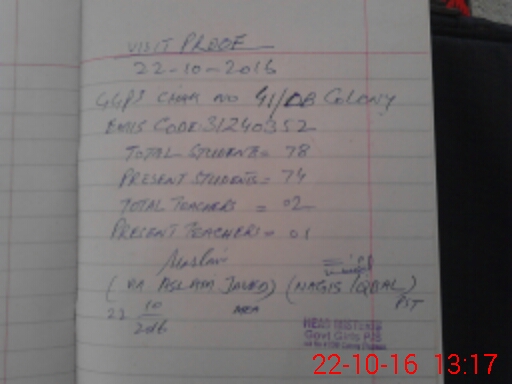 VISIT PROOF
22-10-2016
GGPS CHAK NO 41/DB COLONY
EMIS CODE: 31240352
TOTAL STUDENTS = 78
PRESENT STUDENTS = 74
TOTAL TEACHERS = 02
PRESENT TEACHERS = 01
(M ASLAM JAVED) (NAGIS IQBAL)
22 10 MEA PST
2016
HEAD MISTRESS
Govt Girls P/S
22-10-16 13:17